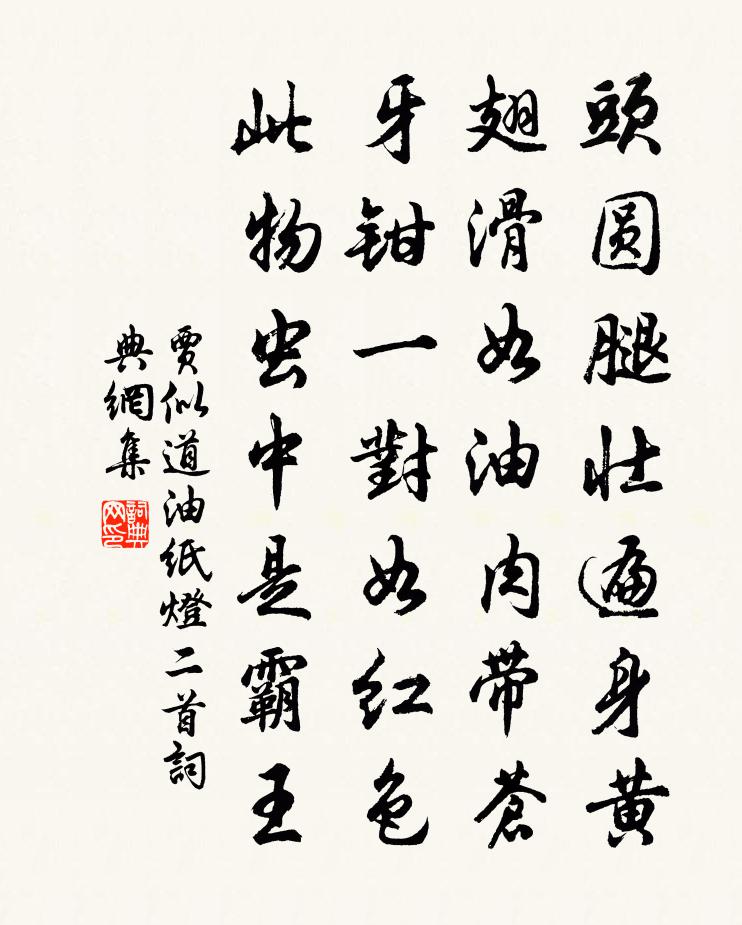 頭圓腿壯遍身黄
翅滑如油肉帶蒼
牙鉗一對如红色
此物虫中是霸王
賈似道油紙燈二首詞
典網集
詞典
网印